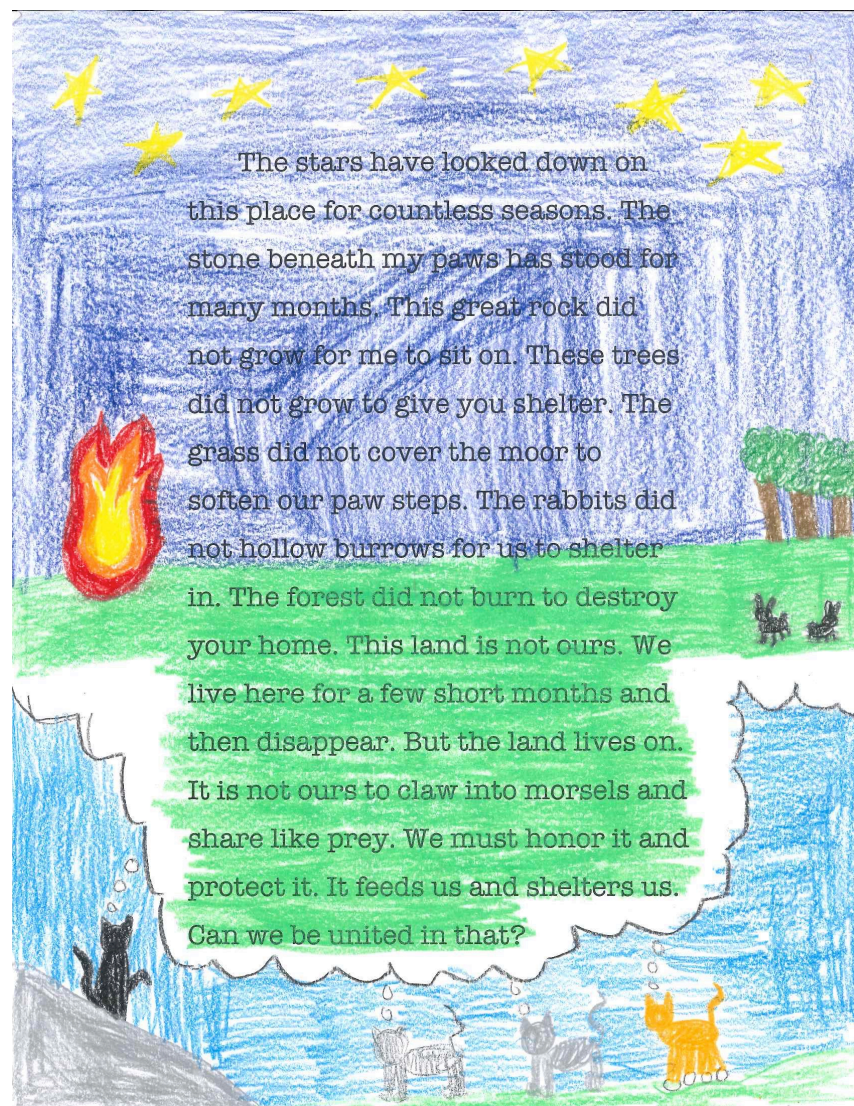 The stars have looked down on
this place for countless seasons. The
stone beneath my paws has stood for
many months. This great rock did
not grow for me to sit on. These trees
did not grow to give you shelter. The
grass did not cover the moor to
soften our paw steps. The rabbits did
not hollow burrows for us to shelter
in. The forest did not burn to destroy
your home. This land is not ours. We
live here for a few short months and
then disappear. But the land lives on.
It is not ours to claw into morsels and
share like prey. We must honor it and
protect it. It feeds us and shelters us.
Can we be united in that?